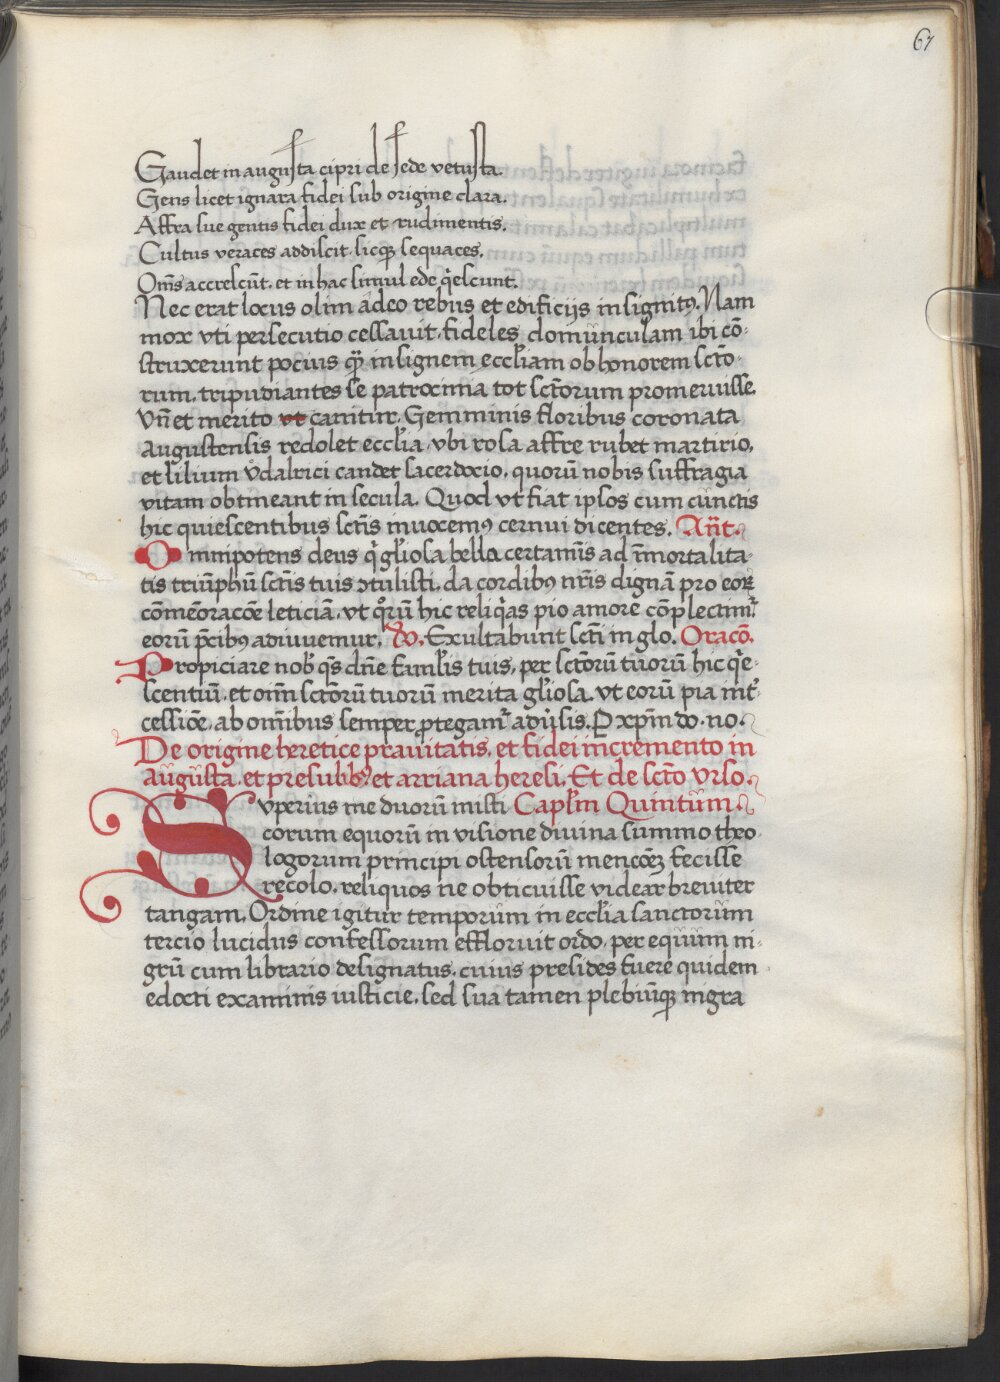 67
Gaudet in augusta cipri de sede vetusta.
Gens licet ignara fidei sub origine clara.
Affra sue gentis fidei dux et rudimentis.
Cultus veraces addiscit. sicqꝫ sequaces.
Om̄s accrescūt. et in hac simul ede q̄escunt.
Nec erat locus olim ādeo rebus et edificijs insignitꝰ. Nam
mox vti persecutio cessauit. fideles domūnculam ibi cō-
struxerunt pocius qꝫ̄ insignem eccl̄iam ob honorem sctō-
rum. tripudiantes se patrocinia tot sctōrum promeruisse.
Vn̄ et merito vt canitur. Gemminis floribus coronata
augustensis redolet eccl̄ia. vbi rosa affre rubet martirio.
et lilium v̊dalrici candet sacerdocio. quorū nobis suffragia
vitam obtineant in secula. Quod vt fiat ipsos cum cūnctis
hic quiescentibus sctīs inuocemꝰ cernui dicentes. An̄t.
Omnipotens deus q̄ gl̄iosa bella certamīs ad īmortalita-
tis triūphū sctīs tuis ↄtulisti. da cordibꝰ nr̄is dignā pro eoꝝ
cōmēoracōe leticiā. vt q̊rū hic reliq̄as pio amore cōplectimᷣ
eorū p̄cibꝰ adiuuemur. V̄. Exultabunt sctī in glo. Oracō.
Propiciare nob̄ qs̄ dn̄e famlīs tuis. per sctōrū tuorū hic q̄e-
scentiū. et oim̄ sctōrū tuorū merita gl̄iosa. vt eorū pia int̄-
cessiōe. ab om̄ibus semper ꝓtegamᷣ adūsis. P xp̄m do. no.
De origine heretice prauitatis. et fidei incremento in
aūgūsta. et presulibꝰ. et arriana heresi. Et de sctō vrso.
Svperius me duorū misti Capl̄m Quintūm.
corum equorū in visione diuina summo theo-
logorum principi ostensorū mencōeꝫ fecisse
recolo. reliquos ne obticuisse videar breuiter
tangam. Ordine igitur temporūm in eccl̄ia sanctorūm
tercio lucidus confessorum effloruit ordo. per equūm ni-
grū cum librario designatus. cuius presides fuere quidem
edocti examinis iusticie. sed sua tamen plebiūqꝫ nigra